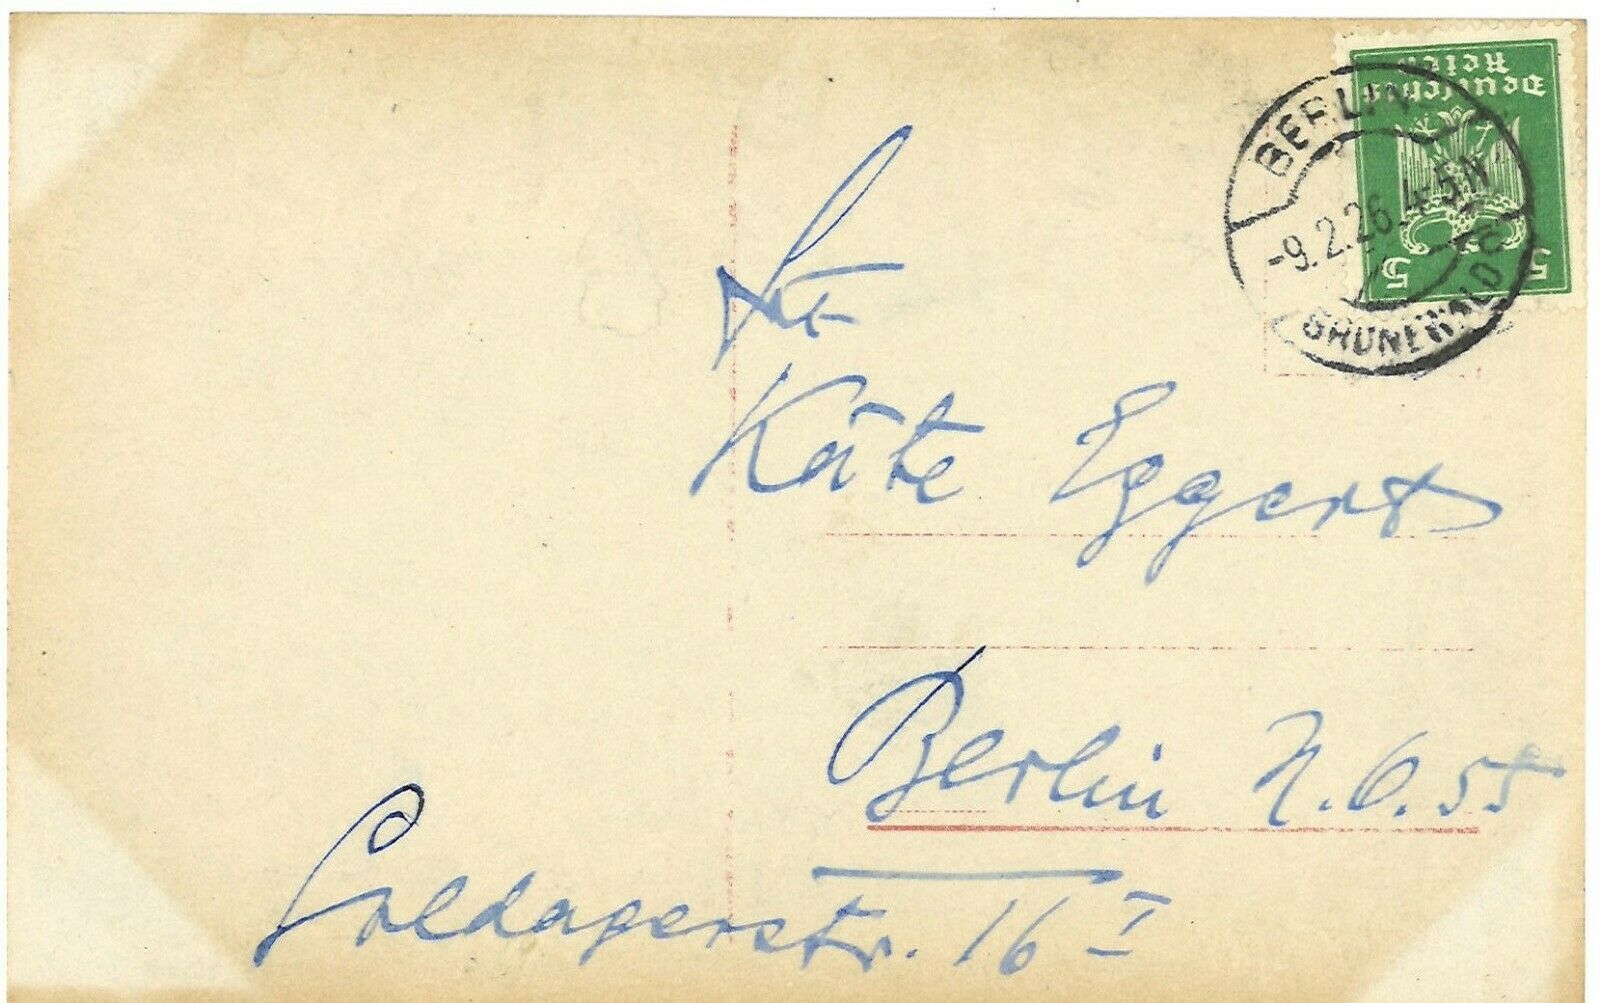 Deutsches
Reich
5 5
BERLIN
-9.2.26.4-5N
GRUNEWALD
Fr.
Käte Eggert
Berlin N.O.55
16 I